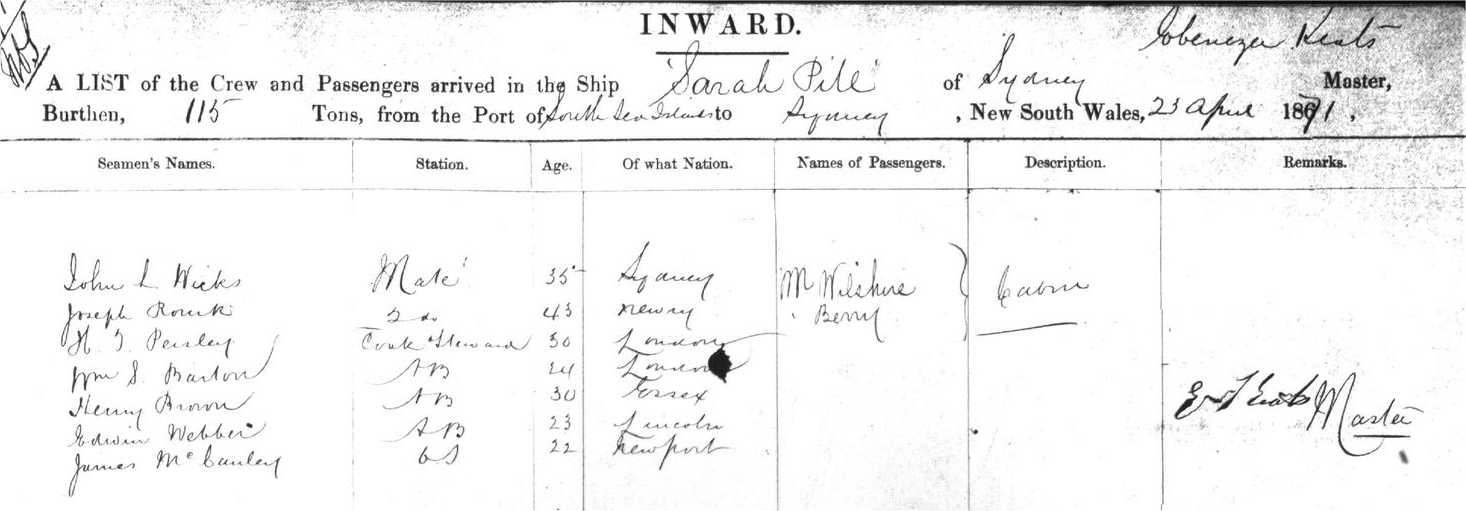 INWARD.
Ebenezer Keats
A LIST of the Crew and Passengers arrived in the Ship "Sarah Pile" of Sydney Master,
Burthen, 115 Tons, from the Port of South Sea Islands to Sydney, New South Wales, 23 April 1871,
Seamen's Names. Station. Age. Of what Nation. Names of Passengers. Description. Remarks.
John L Wicks Mate 35 Sydney Mr Wilshire Cabin
Joseph Rourk 2 do 43 Newry " Berry
H. J. Pensley Cook & Steward 30 London
Wm S. Barton AB 24 London
Henry Brown AB 30 Essex
E Keats Master
Edwin Webber AB 23 Lincoln
James McCauley OS 22 Newport